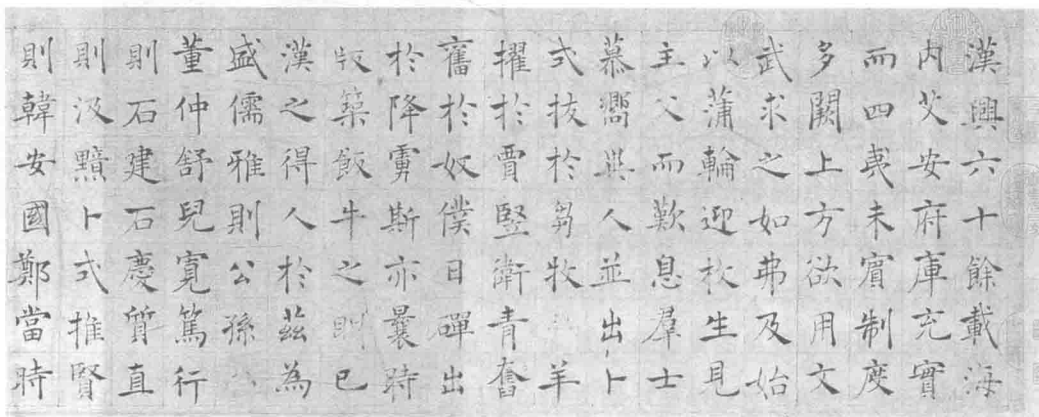 漢興六十餘載海
内艾安府庫充實
而四夷未賓制度
多闕上方欲用文
武求之如弗及始
以蒲輪迎枚生見
主父而歎息羣士
慕嚮異人並出卜
式拔於芻牧羊
擢於賈竪衛青奮
舊於奴僕日磾出
於降虜斯亦曩時
版築飯牛之已
漢之得人於茲為
盛儒雅則公孫
董仲舒兒寬篤行
則石建石慶質直
則汲黯卜式推賢
則韓安國鄭當時